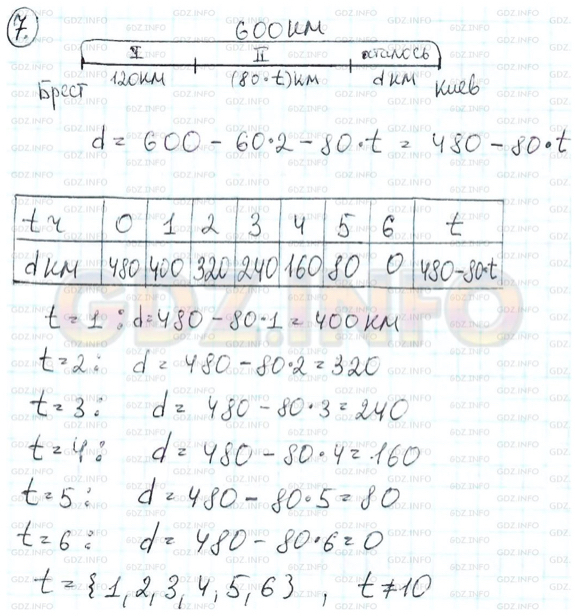 7.
600км
I II осталось
Брест 120км (80·t)км dкм Киев
d = 600 - 60·2 - 80·t = 480 - 80·t
t ч 0 1 2 3 4 5 6 t
d км 480 400 320 240 160 80 0 480-80·t
t = 1 : d = 480 - 80·1 = 400 км
t = 2 : d = 480 - 80·2 = 320
t = 3 : d = 480 - 80·3 = 240
t = 4 : d = 480 - 80·4 = 160
t = 5 : d = 480 - 80·5 = 80
t = 6 : d = 480 - 80·6 = 0
t = {1, 2, 3, 4, 5, 6} , t ≠ 10
GDZ.INFO